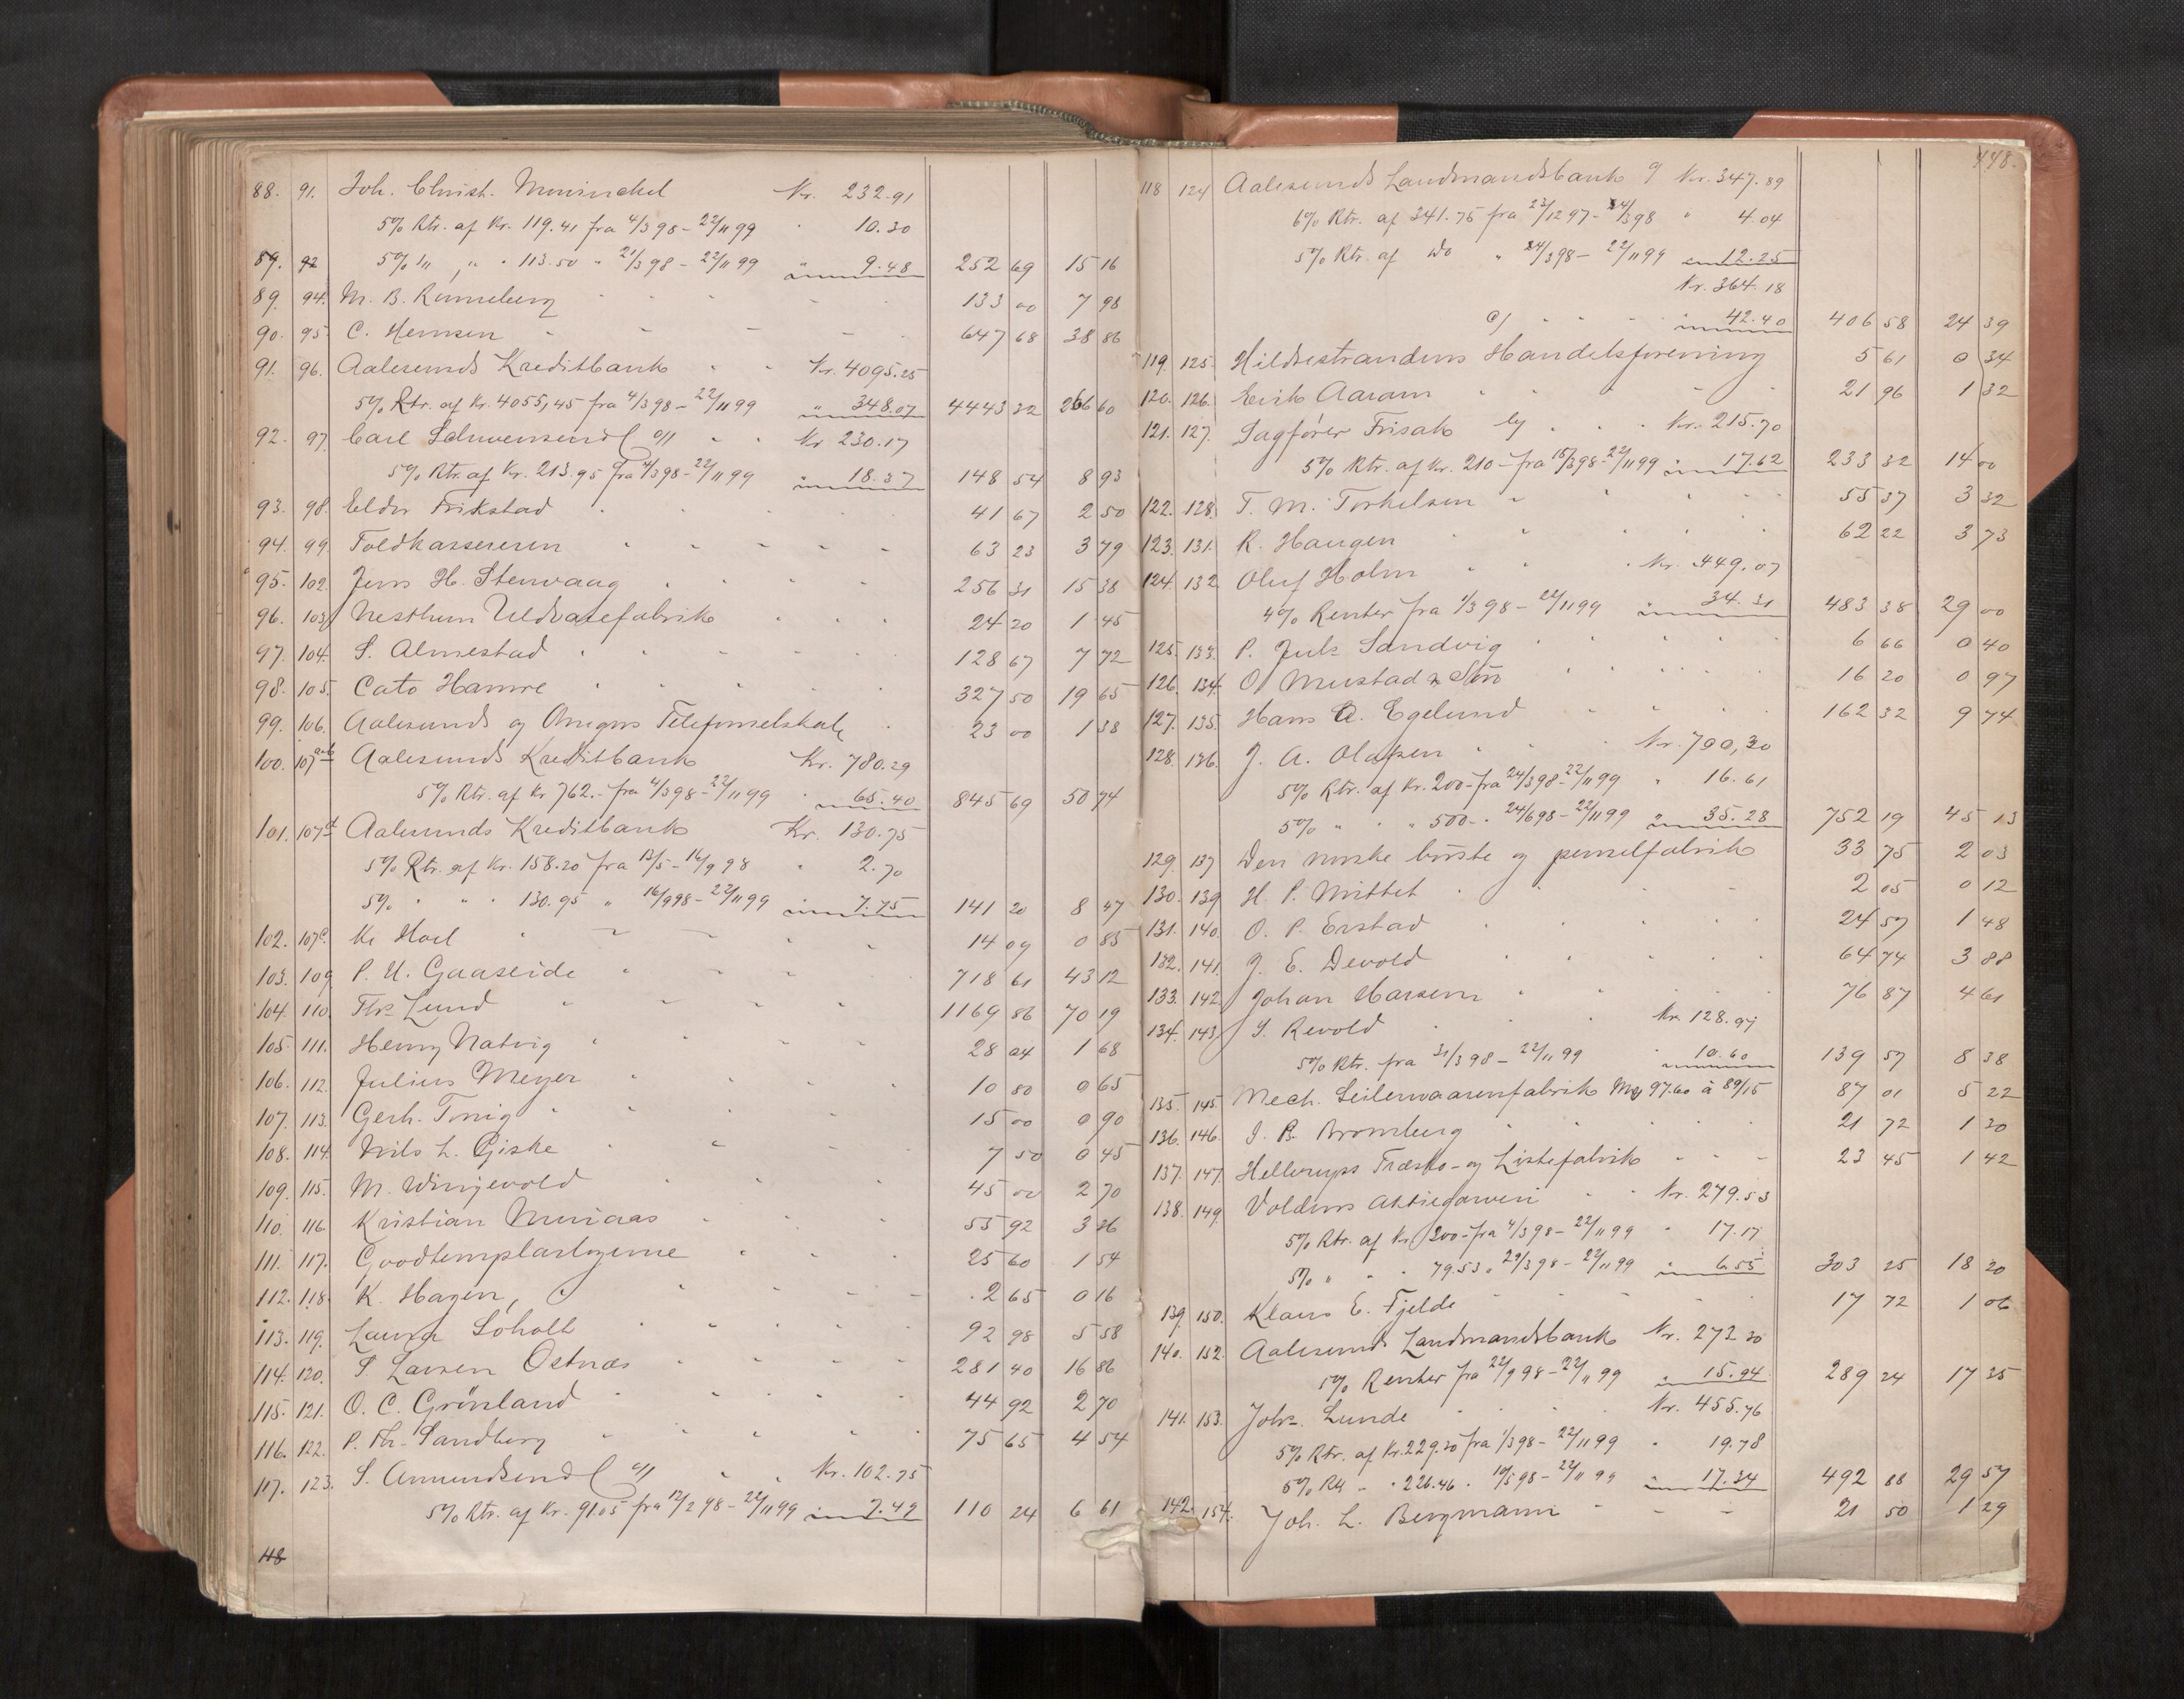 88. 91. Joh. Christ. Mowinckel Kr. 232.91
5% Rtr. af Kr. 119.41 fra 4/3 98 - 22/11 99 " 10.30
89. 92 5% " " " 113.50 " 21/3 98 - 22/11 99 " 9.48 252 69 15 16
89. 94. M. B. Rønneberg 133 00 7 98
90. 95. C. Hemsen 647 68 38 86
91. 96. Aalesunds Kreditbank Kr. 4095.25
5% Rtr. af Kr. 4055,45 fra 4/3 98 - 22/11 99 " 348.07 4443 32 266 60
92. 97. Carl Schwensen Kr 230.17
5% Rtr. af Kr. 213.95 fra 4/3 98 - 22/11 99 " 18.37 148 54 8 93
93. 98. Eldor Frikstad 41 67 2 50
94. 99. Toldkassereren 63 23 3 79
95. 102. Jens H. Stenvaag 256 31 15 38
96. 103. Nesttun Uldvarefabrik 24 20 1 45
97. 104. S. Almestad 128 67 7 72
98. 105. Cato Hamre 327 50 19 65
99. 106. Aalesunds og Omegns Telefonselskab 23 00 1 38
100. 107 a+b Aalesunds Kreditbank Kr. 780.29
5% Rtr. af Kr 762.- fra 4/3 98 - 22/11 99 " 65.40 845 69 50 74
101. 107 d Aalesunds Kreditbank Kr. 130.75
5% Rtr. af Kr. 158.20 fra 13/5 - 16/9 98 " 2.70
5% " " " 130.95 " 16/9 98 - 22/11 99 " 7.75 141 20 8 47
102. 107 c. Kr Hoel 14 09 0 85
103. 109. P. U. Gaaseide 718 61 43 12
104. 110. Ths Lund 1169 86 70 19
105. 111. Henry Natvig 28 04 1 68
106. 112. Julius Meyer 10 80 0 65
107. 113. Gerh. Tonig 15 00 0 90
108. 114. Nils L. Giske 7 50 0 45
109. 115. M. Wingevold 45 00 2 70
110. 116. Kristian Moriaas 55 92 3 36
111. 117. Goodtemplarlogerne 25 60 1 54
112. 118. K. Hagen, 2 65 0 16
113. 119. Laura Soholt 92 98 5 58
114. 120. S. Larsen Ostnæs 281 40 16 86
115. 121. O. C. Grönland 44 92 2 70
116. 122. P. Th. Sandberg 75 65 4 54
117. 123. S. Amundsen Kr. 102.75
5% Rtr. af Kr. 91.05 fra 12/2 98 - 22/11 99 " 7.49 110 24 6 61
118
448.
118 124 Aalesunds Landmandsbank Kr. 347.89
6% Rtr. af 341.75 fra 23/12 97 - 24/3 98 " 4.04
5% Rtr. af do " 24/3 98 - 22/11 99 12.25
Kr. 364.18
42.40 406 58 24 39
119. 125. Hildrestrandens Handelsforening 5 61 0 34
120. 126. Erik Aaram 21 96 1 32
121. 127. Sagfører Frisak Kr. 215.70
5% Rtr. af Kr. 210 - fra 15/3 98 - 22/11 99 " 17.62 233 32 14 00
122. 128. T. M. Torkelsen 55 37 3 32
123. 131. R. Haugen 62 22 3 73
124. 132 Oluf Holm Kr. 449.07
4% Renter fra 1/3 98 - 22/11 99 " 34.31 483 38 29 00
125. 133. P. Juls Sandvig 6 66 0 40
126. 134. O. Mustad & Søn 16 20 0 97
127. 135. Hans A. Egelund 162 32 9 74
128. 136. J. A. Olafsen Kr. 700,30
5% Rtr. af Kr. 200 - fra 24/3 98 - 22/11 99 " 16.61
5% " " " 500 - " 24/6 98 - 22/11 99 " 35.28 752 19 45 13
129. 137 Den norske børste og penselfabrik 33 75 2 03
130. 139 H. P. Mittet 2 05 0 12
131. 140. O. P. Erstad 24 57 1 48
132. 141. J. E. Devold 64 74 3 88
133. 142. Johan Harsem 76 87 4 61
134. 143 S. Revold Kr. 128.97
5% Rtr. fra 31/3 98 - 22/11 99 " 10.60 139 57 8 38
135. 145. Mech. Seilervaarenfabrik Mrg 97.60 à 89/15 87 01 5 22
136. 146. I. B. Bromberg 21 72 1 30
137. 147. Hellerups Træsko- og Listefabrik 23 45 1 42
138. 149. Voldens Aktiegarveri Kr. 279.53
5% Rtr. af Kr 200 - fra 4/3 98 - 22/11 99 " 17.17
5% " " " 79.53 " 29/3 98 - 22/11 99 " 6.55 303 25 18 20
139. 150. Klaus E. Fjelde 17 72 1 06
140. 152. Aalesunds Landmandsbank Kr. 273 30
5% Renter fra 22/9 98 - 22/11 99 " 15.94 289 24 17 35
141. 153. Johs. Lunde Kr. 455.76
5% Rtr. af Kr. 229.30 fra 1/3 98 - 22/11 99 " 19.78
5% Rtr " " 226.46 " 10/5 98 - 22/11 99 " 17.34 492 88 29 57
142. 154. Joh. L. Bergmann 21 50 1 29